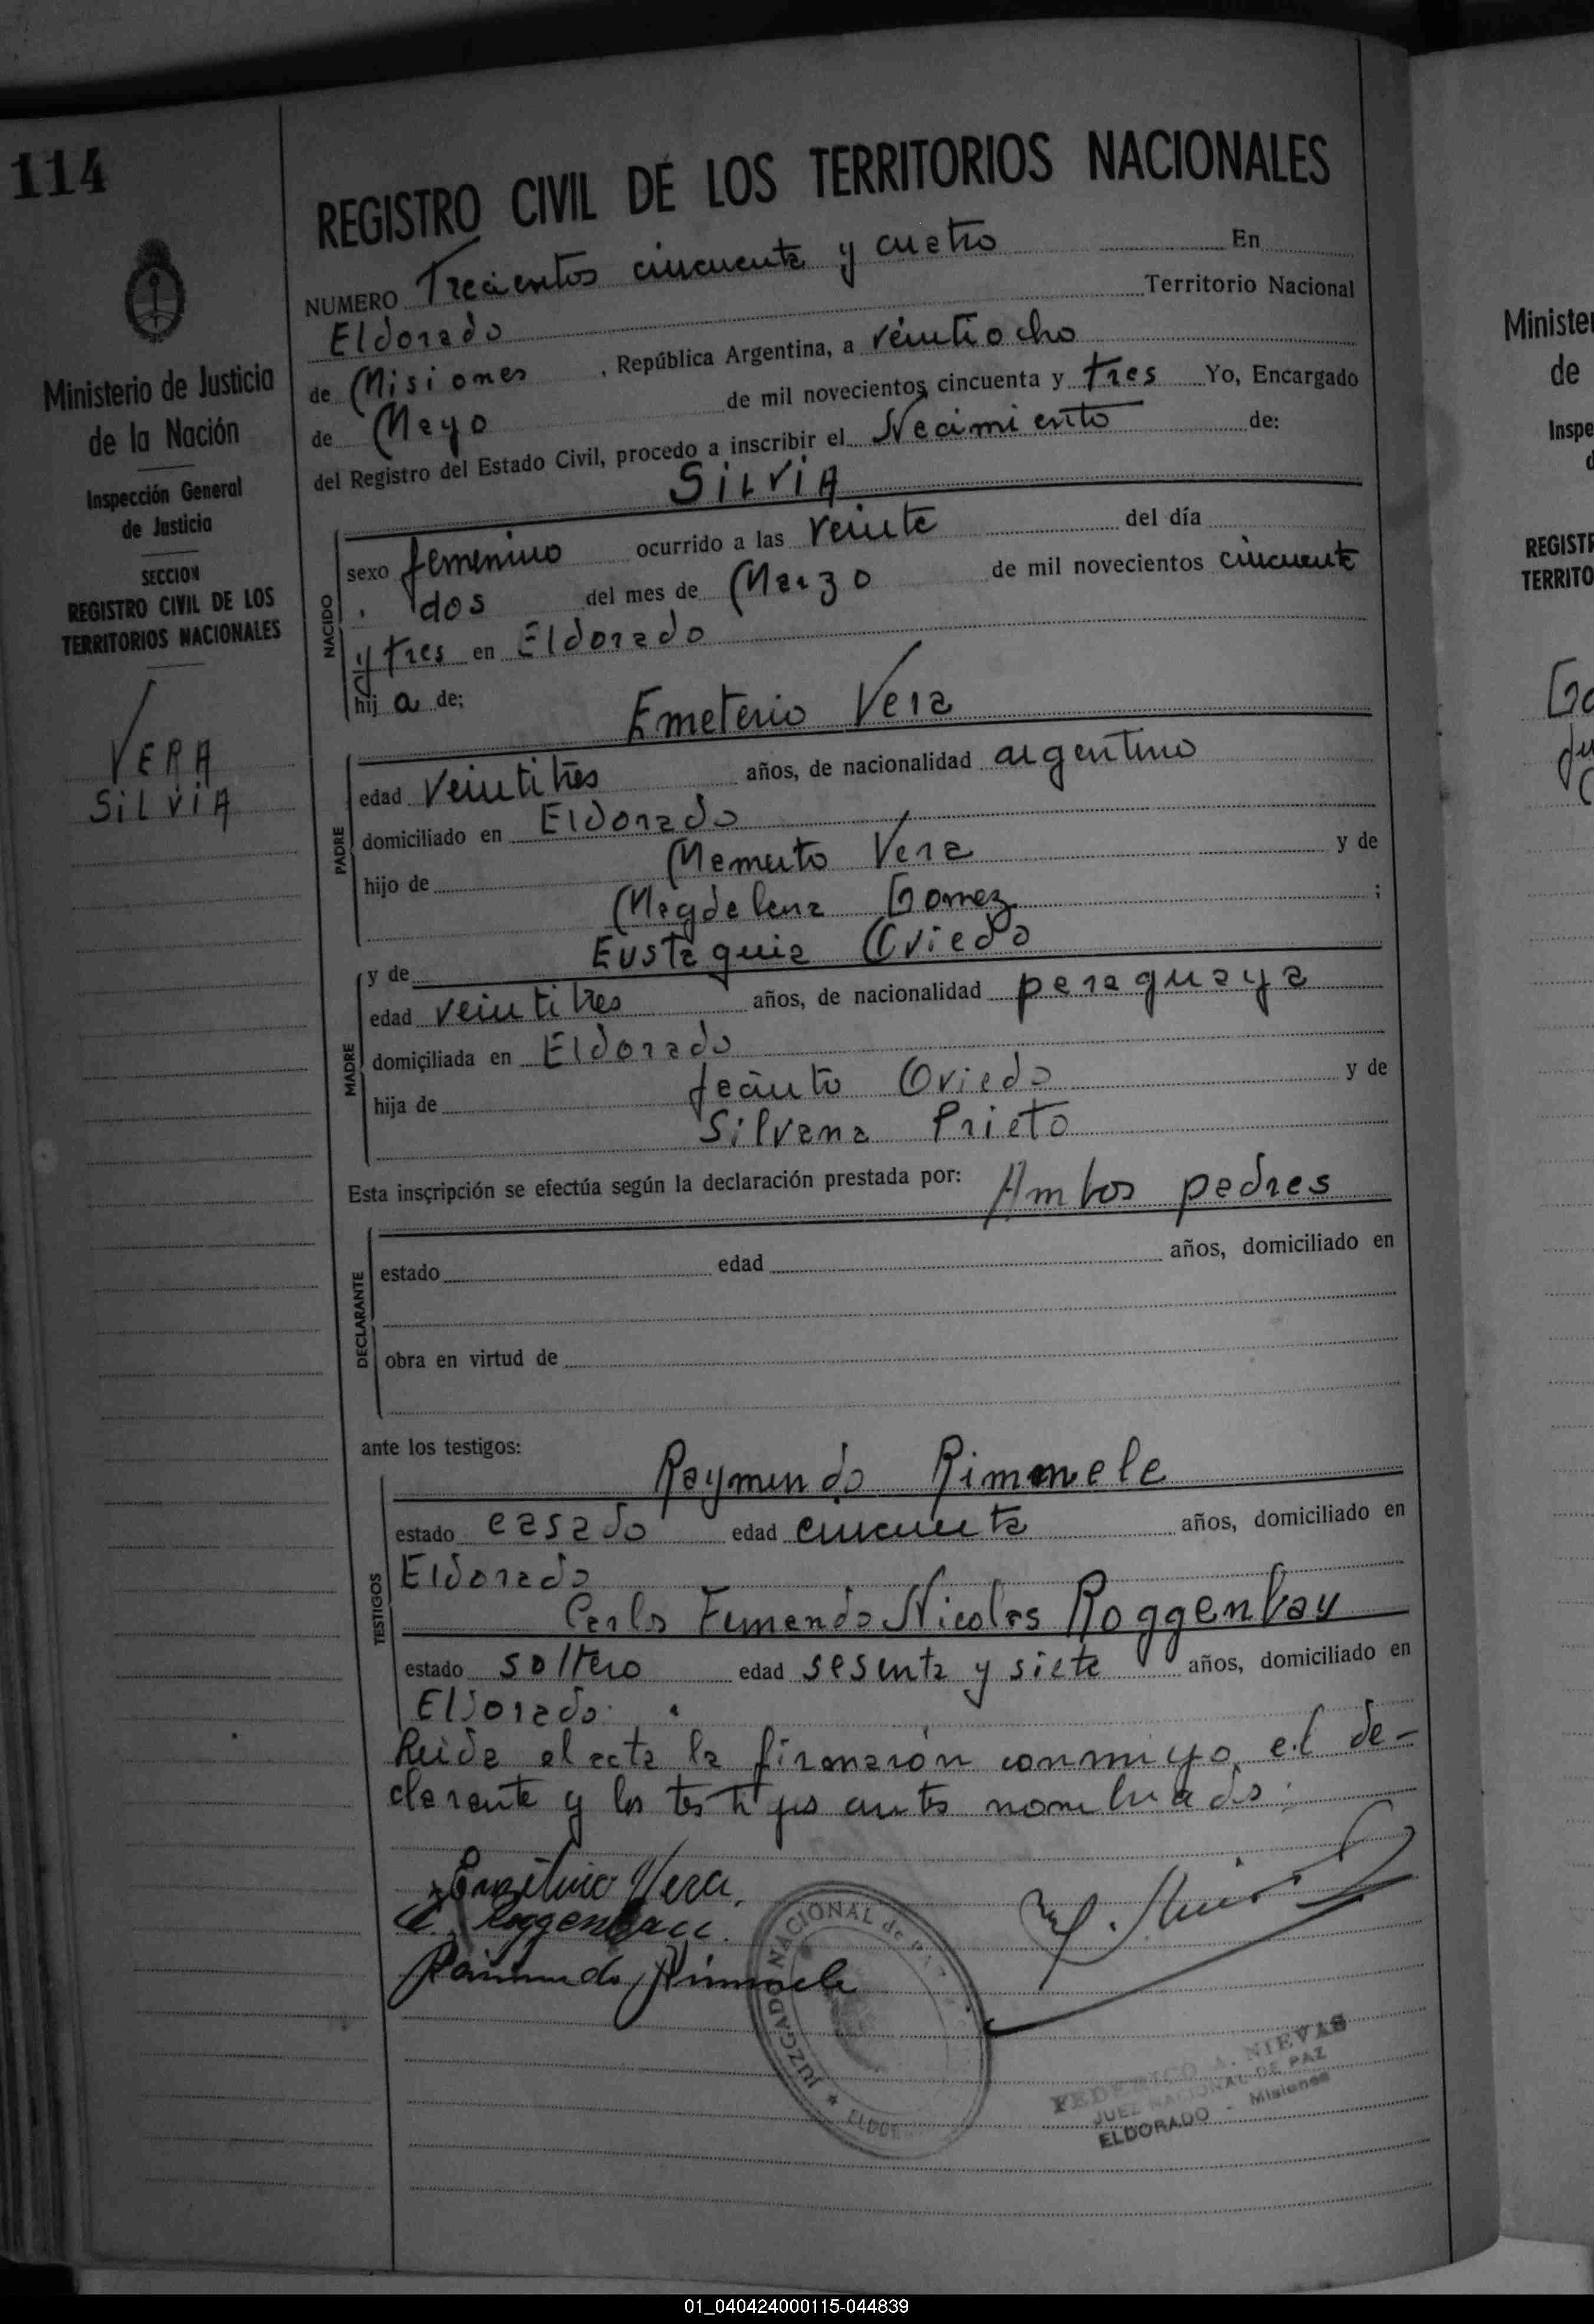 114
Ministerio de Justicia
de la Nación
Inspección General
de Justicia
SECCION
REGISTRO CIVIL DE LOS
TERRITORIOS NACIONALES
VERA
SILVIA
REGISTRO CIVIL DE LOS TERRITORIOS NACIONALES
NUMERO Trecientos cincuenta y cuatro En
Eldorado Territorio Nacional
de Misiones, República Argentina, a veintiocho
de Mayo de mil novecientos cincuenta y tres Yo, Encargado
del Registro del Estado Civil, procedo a inscribir el Nacimiento de:
SILVIA
NACIDO
sexo femenino ocurrido a las veinte del día
dos del mes de Marzo de mil novecientos cincuenta
y tres en Eldorado
hij a de;
Emeterio Vera
PADRE
edad veintitres años, de nacionalidad argentino
domiciliado en Eldorado
hijo de Memerto Vera y de
Magdalena Gomez ;
y de Eustaquia Oviedo
MADRE
edad veintitres años, de nacionalidad paraguaya
domiciliada en Eldorado
hija de Jacinto Oviedo y de
Silvana Prieto
Esta inscripción se efectúa según la declaración prestada por: Ambos padres
DECLARANTE
estado edad años, domiciliado en
obra en virtud de
ante los testigos:
Raymundo Rimmele
TESTIGOS
estado casado edad cincuenta años, domiciliado en
Eldorado
Carlos Fernando Nicolas Roggenbau
estado soltero edad sesenta y siete años, domiciliado en
Eldorado.
Leida el acta la firmarón conmigo el de-
clarante y los testigos antes nombrados.
Vera
Roggenbau
Raimundo Rimmele
JUZGADO NACIONAL de PAZ
ELDOR
FEDERICO A. NIEVAS
JUEZ NACIONAL DE PAZ
ELDORADO - Misiones
Minister
de
Inspe
REGISTR
TERRITO
01_040424000115-044839